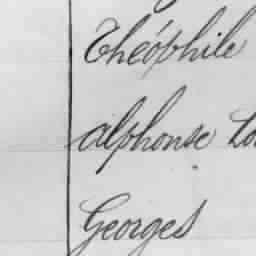 Théophile
Alphonse
Georges